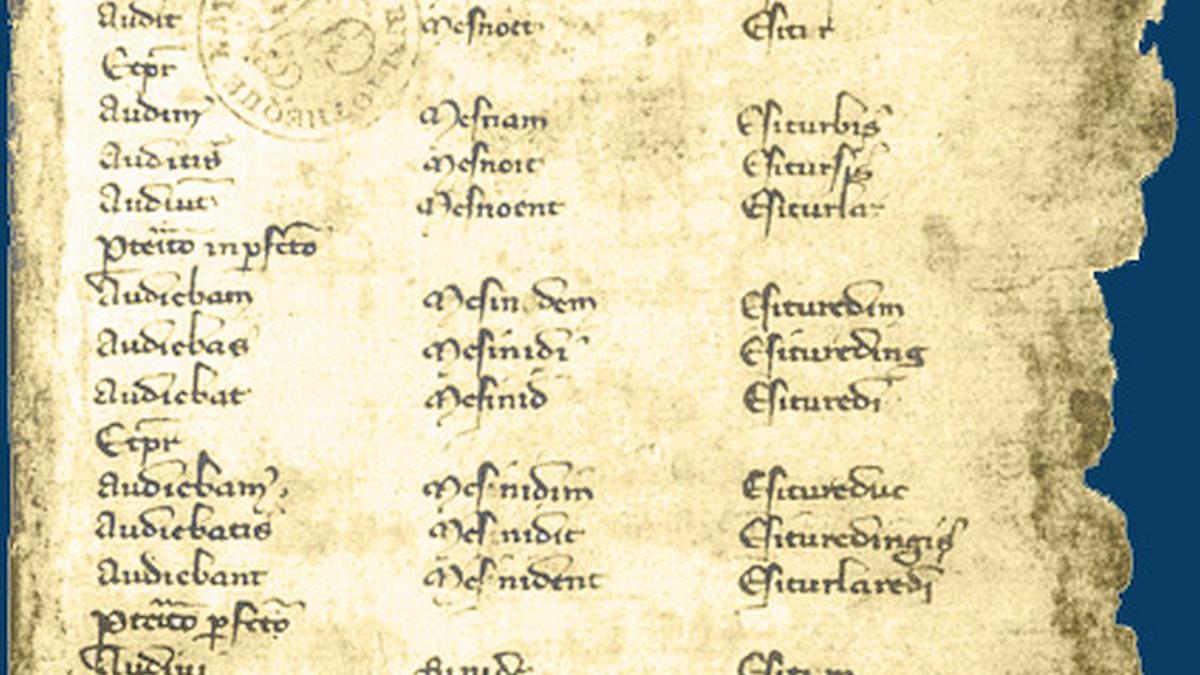 Audit Mesnoet Esitir
Et pr
Audim Mesnam Esiturbis
Auditis Mesnoit Esitursis
Audiūt Mesnoent Esiturlar
Pteīto inpfcto
Audiebam Mesin dem Esituredim
Audiebas Mesinidi Esitureding
Audiebat Mesinid Esituredi
Et pr
Audiebam Mes nidim Esitureduc
Audiebatis Mes nidit Esituredingis
Audiebant Mes nident Esiturlaredi
Pteīto pfcto
Audiui